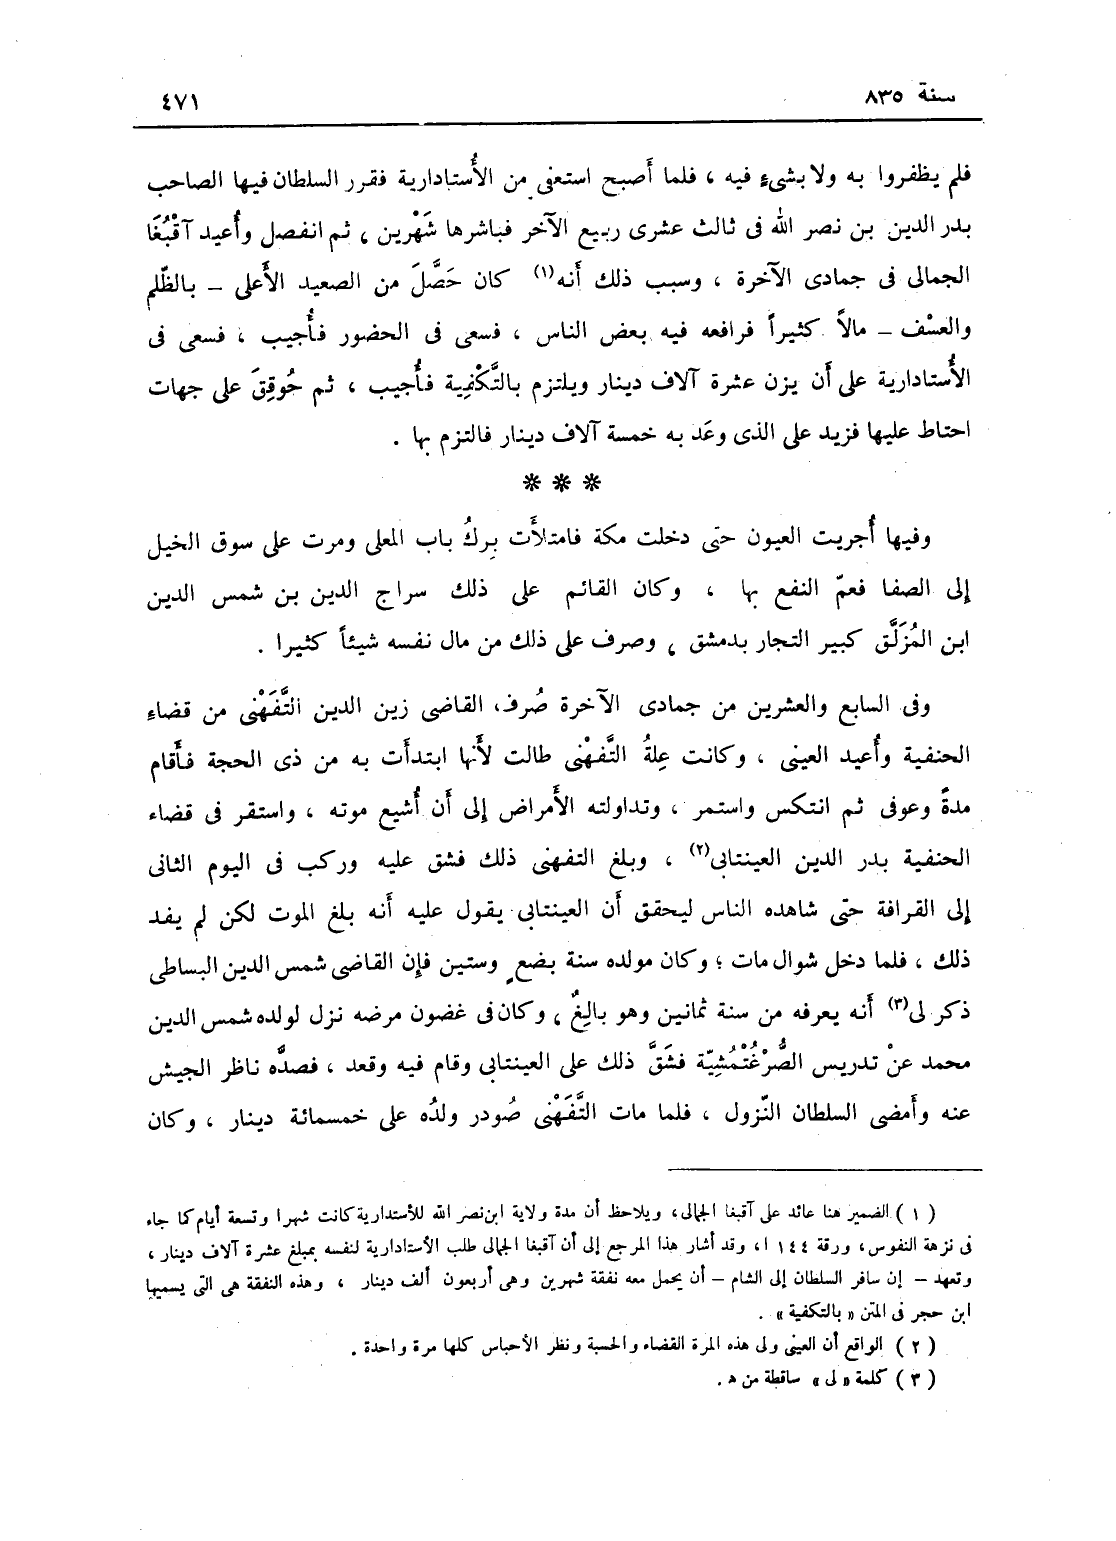 سنة ٨٣٥
٤٧١
فلم يظفروا به ولا بشىء فيه ، فلما أَصبح استعفى من الأُستادارية فقرر السلطان فيها الصاحب
بدر الدين بن نصر الله فى ثالث عشرى ربيع الآخر فباشرها شَهْرين ، ثم انفصل وأُعيد آقْبُغَا
الجمالى فى جمادى الآخرة ، وسبب ذلك أَنه(١) كان حَصَّلَ من الصعيد الأَعلى – بالظّلم
والعسْف – مالاً كثيراً فرافعه فيه بعض الناس ، فسعى فى الحضور فأُجيب ، فسعى فى
الأُستادارية على أَن يزن عشرة آلاف دينار ويلتزم بالتَّكْفِية فأُجيب ، ثم حُوقِقَ على جهات
احتاط عليها فزيد على الذى وعَد به خمسة آلاف دينار فالتزم بها .
* * *
وفيها أُجريت العيون حتى دخلت مكة فامتلأَت بِركُ باب المعلى ومرت على سوق الخيل
إلى الصفا فعمّ النفع بها ، وكان القائم على ذلك سراج الدين بن شمس الدين
ابن المُزَلَّق كبير التجار بدمشق ، وصرف على ذلك من مال نفسه شيئاً كثيرا .
وفى السابع والعشرين من جمادى الآخرة صُرف القاضى زين الدين التَّفَهْنى من قضاء
الحنفية وأُعيد العينى ، وكانت عِلةُ التَّفهْنى طالت لأَنها ابتدأَت به من ذى الحجة فأَقام
مدةً وعوفى ثم انتكس واستمر ، وتداولته الأَمراض إلى أَن أُشيع موته ، واستقر فى قضاء
الحنفية بدر الدين العينتابى(٢) ، وبلغ التفهنى ذلك فشق عليه وركب فى اليوم الثانى
إلى القرافة حتى شاهده الناس ليحقق أَن العينتابى يقول عليه أَنه بلغ الموت لكن لم يفد
ذلك ، فلما دخل شوال مات ؛ وكان مولده سنة بضعٍ وستين فإن القاضى شمس الدين البساطى
ذكر لى(٣) أَنه يعرفه من سنة ثمانين وهو بالِغٌ ، وكان فى غضون مرضه نزل لولده شمس الدين
محمد عنْ تدريس الصُّرْغُتْمُشِيّة فشَقَّ ذلك على العينتابى وقام فيه وقعد ، فصدَّه ناظر الجيش
عنه وأَمضى السلطان النّزول ، فلما مات التَّفَهْنى صُودر ولدُه على خمسمائة دينار ، وكان
( ١ ) الضمير هنا عائد على آقبغا الجمالى، ويلاحظ أن مدة ولاية ابن نصر الله للأستدارية كانت شهرا وتسعة أيام كما جاء
فى نزهة النفوس، ورقة ١٤٤ ا، وقد أشار هذا المرجع إلى أن آقبغا الجمالى طلب الأستادارية لنفسه بمبلغ عشرة آلاف دينار ،
وتعهد – إن سافر السلطان إلى الشام – أن يحمل معه نفقة شهرين وهى أربعون ألف دينار ، وهذه النفقة هى التى يسميها
ابن حجر فى المتن « بالتكفية » .
( ٢ ) الواقع أن العينى ولى هذه المرة القضاء والحسبة ونظر الأحباس كلها مرة واحدة .
( ٣ ) كلمة « لى » ساقطة من ه .